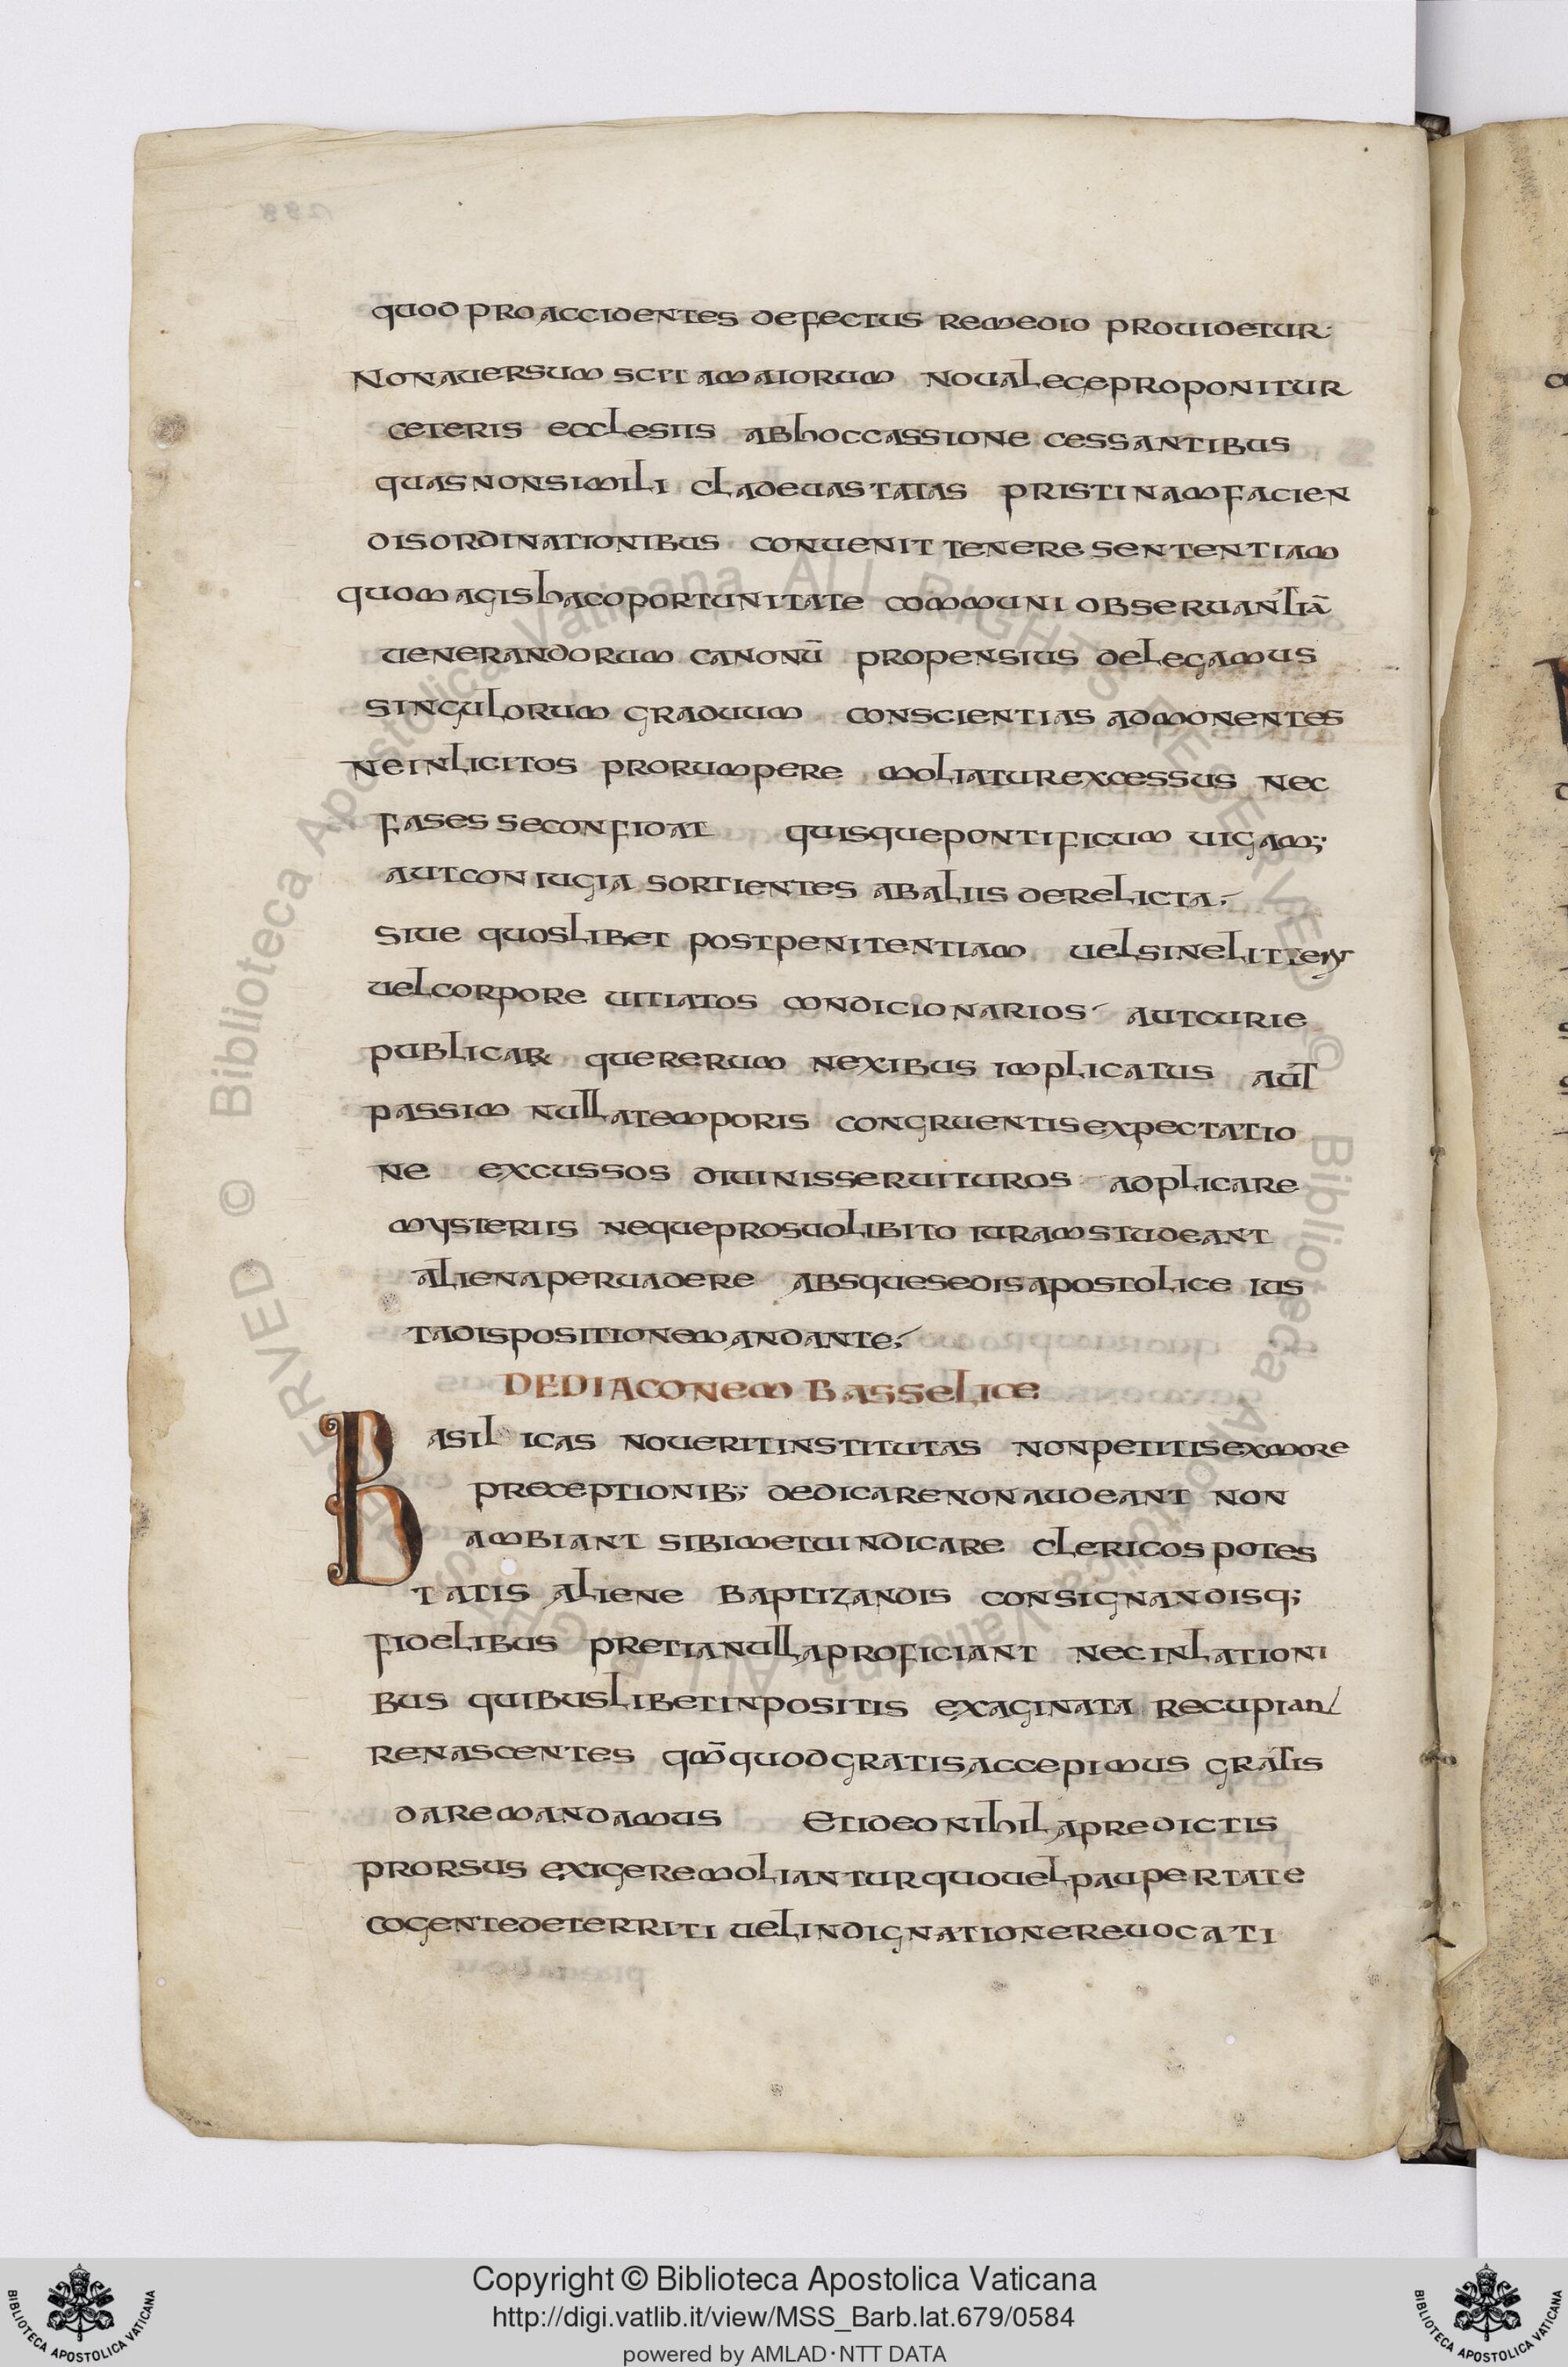 quod pro accidentes defectus remedio prouidetur
Non auersum scit amaiorum noua lege proponitur
ceteris ecclesiis ab hoccassione cessantibus
quas non simili clade uastatas pristinam facien
dis ordinationibus conuenit tenere sententiam
quo magis hac oportunitate communi obseruantiā
uenerandorum canonū propensius delegamus
singulorum graduum conscientias admonentes
ne inlicitos prorumpere moliatur excessus nec
fas esse confidat quisque pontificum uigam;
aut coniugia sortientes ab aliis derelicta.
siue quoslibet post penitentiam uel sine litteris
uel corpore uitiatos condicionarios aut curie
publicar quererum nexibus implicatus aut
passim nulla temporis congruentis expectatio
ne excussos diuinis seruituros adplicare
mysteriis neque pro suo libito iuram studeant
aliena peruadere absque sedis apostolice ius
ta dispositione mandante;
DE DIACONEM BASSELICE
Basilicas nouerit institutas non petitis ex more
preceptionib; dedicare non audeant non
ambiant sibimet uindicare clericos potes
tatis aliene baptizandis consignandisq;
fidelibus pretia nulla proficiant nec inlationi
bus quibuslibet inpositis exaginata recupiant
renascentes qm̄ quod gratis accepimus gratis
dare mandamus Et ideo nihil a predictis
prorsus exigere moliantur quo uel paupertate
cogente deterriti uel indignatione reuocati
© Biblioteca Apostolica Vaticana ALL RIGHTS RESERVED
© Biblioteca Apostolica Vaticana ALL RIGHTS RESERVED
Copyright © Biblioteca Apostolica Vaticana
http://digi.vatlib.it/view/MSS_Barb.lat.679/0584
powered by AMLAD·NTT DATA
BIBLIOTECA APOSTOLICA VATICANA
BIBLIOTECA APOSTOLICA VATICANA